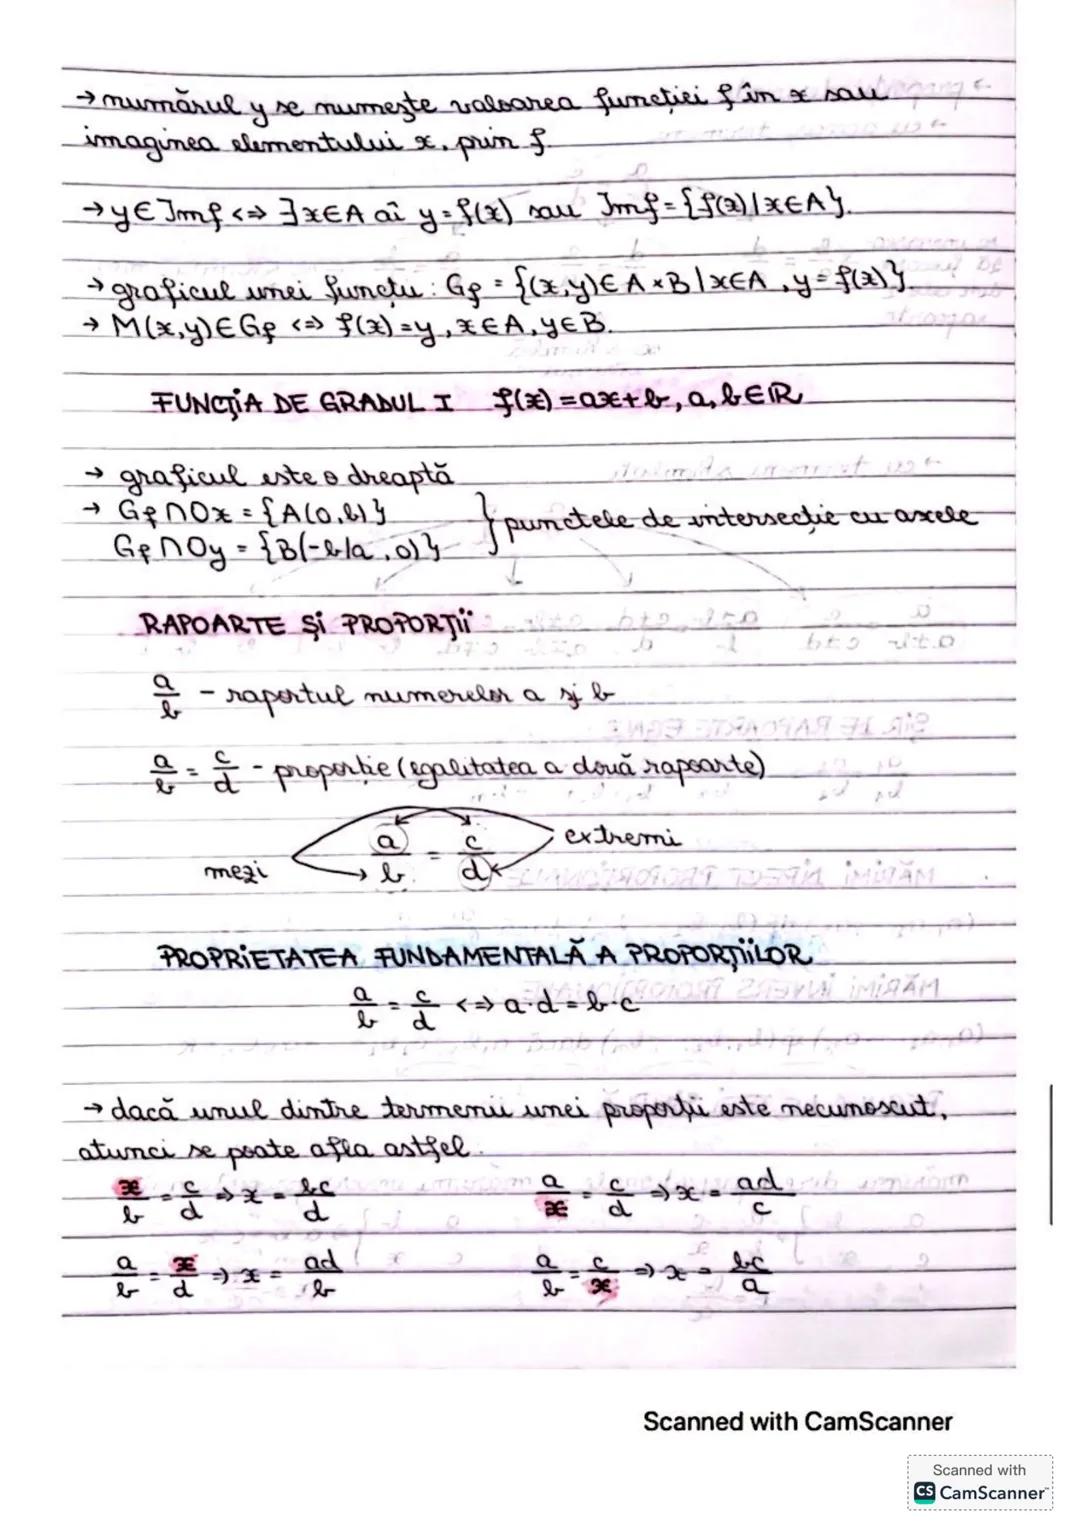 → numărul y se numește valoarea funcției f în x sau
imaginea elementului x, prin f.
→ y∈Imf <=> ∃x∈A aî y=f(x) sau Imf={f(x)|x∈A}.
→ graficul unei funcții: Gf = {(x,y)∈A×B|x∈A, y=f(x)}.
→ M(x,y)∈Gf <=> f(x)=y, x∈A, y∈B.
FUNCȚIA DE GRADUL I f(x)=ax+b, a,b∈ℝ
→ graficul este o dreaptă
→ Gf∩Ox = {A(0,b)}
Gf∩Oy = {B(-b/a, 0)} } punctele de intersecție cu axele
RAPOARTE ȘI PROPORȚII
a/b - raportul numerelor a și b
a/b = c/d - proporție (egalitatea a două rapoarte)
extremi
a/b = c/d
mezi
PROPRIETATEA FUNDAMENTALĂ A PROPORȚIILOR
a/b = c/d <=> a·d = b·c
→ dacă unul dintre termenii unei proporții este necunoscut,
atunci se poate afla astfel.
x/b = c/d => x = bc/d a/x = c/d => x = ad/c
a/b = x/d => x = ad/b a/b = c/x => x = bc/a
Scanned with CamScanner
Scanned with
CS CamScanner